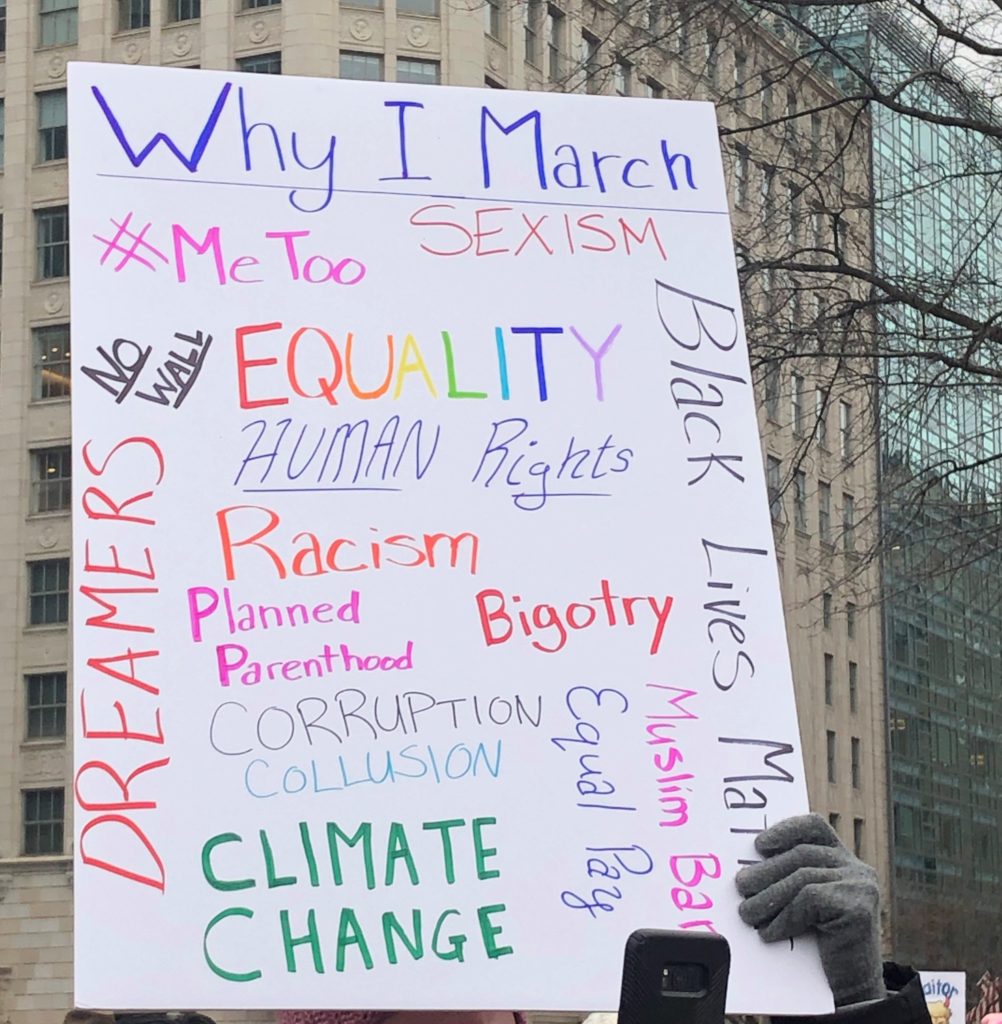 Why I March
#MeToo
SEXISM
NO
WALL
EQUALITY
HUMAN Rights
DREAMERS
Black Lives Mat
Racism
Planned
Parenthood
Bigotry
CORRUPTION
COLLUSION
Equal Pay
Muslim Ban
CLIMATE
CHANGE
aitor